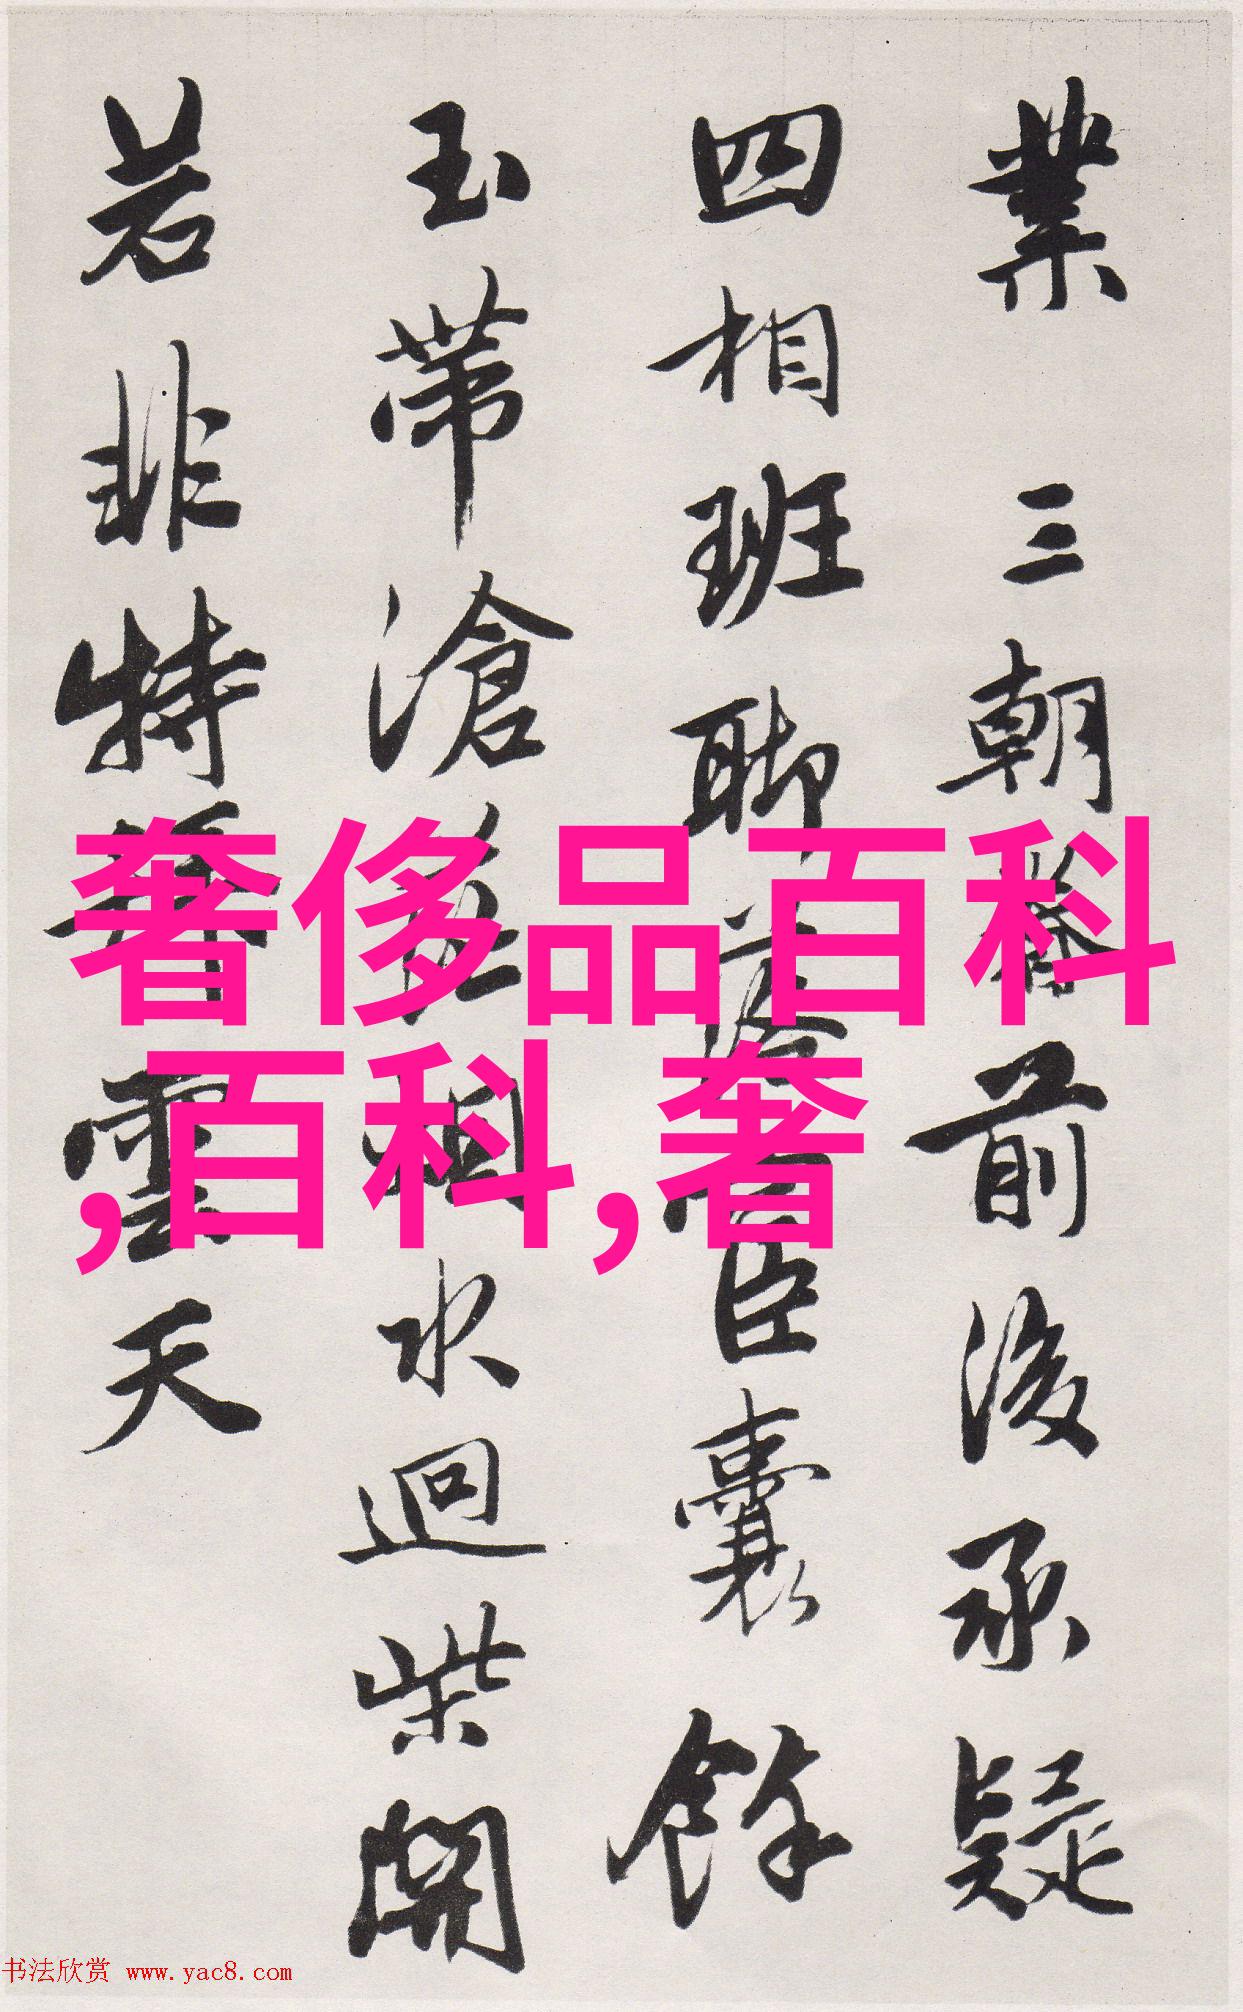 業三朝　前後承疑
四相班聊　臣囊餘
玉帶滄　水迴柴開
若非特　雲天
奢侈品百科
,百科,奢
书法欣赏 www.yac8.com